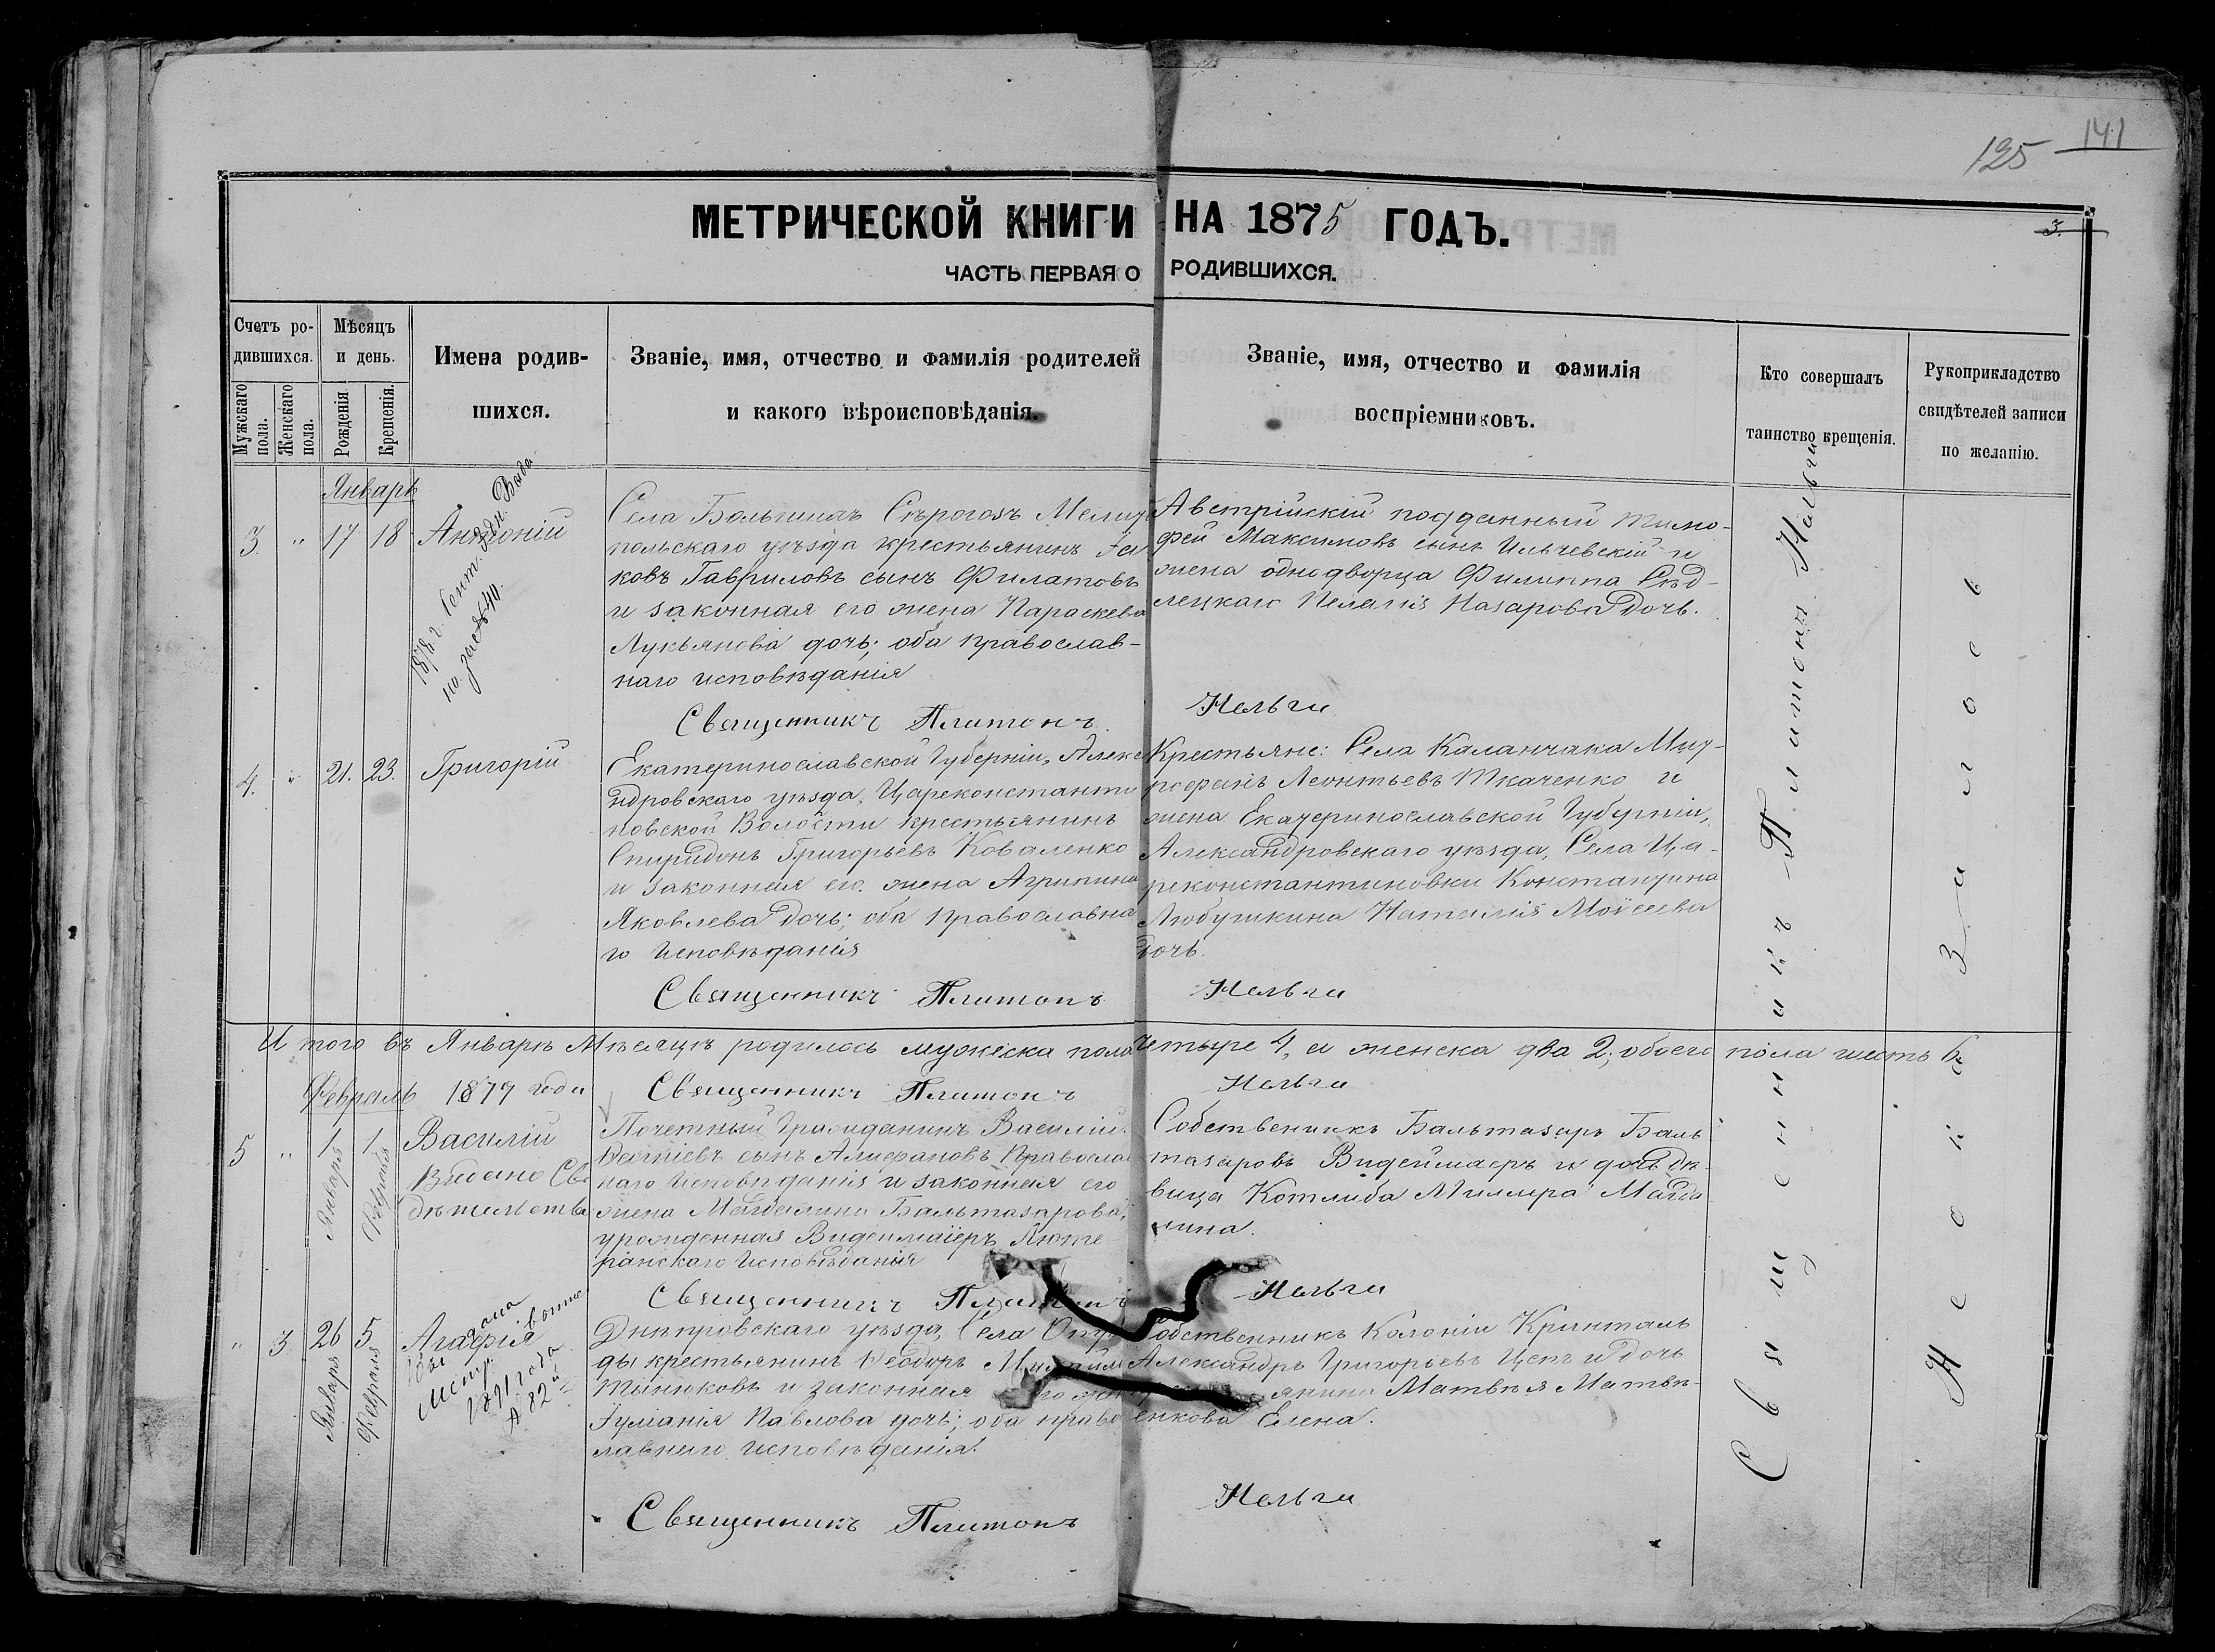 125 141
МЕТРИЧЕСКОЙ КНИГИ НА 1875 ГОДЪ.
3.
ЧАСТЬ ПЕРВАЯ О РОДИВШИХСЯ.
Счетъ ро-
дившихся.
Мужскаго пола.
Женскаго пола.
Мѣсяцъ
и день.
Рожденія.
Крещенія.
Имена родив-
шихся.
Званіе, имя, отчество и фамилія родителей
и какого вѣроисповѣданія.
Званіе, имя, отчество и фамилія
воспріемниковъ.
Кто совершалъ
таинство крещенія.
Рукоприкладство
свидѣтелей записи
по желанію.
Январь
3. " 17 18 Антоній
1878 г. Сент.
Села Большихъ Сѣрогозъ Мелит
польскаго уѣзда крестьянинъ Іа
ковъ Гавриловъ сынъ Филатовъ
и законная его жена Параскева
Лукьянова дочь; оба православ-
наго исповѣданія
Священникъ Платонъ Нельги
Австрійскій подданный Тимо-
фей Максимовъ сынъ Ильчевскій и
жена однодворца Филиппа Сѣд-
лецкаго Пелагія Назарова дочь.
4. " 21. 23. Григорій
Екатеринославской Губерніи, Алекса
ндровскаго уѣзда, Цареконстанти
новской Волости крестьянинъ
Спиридонъ Григорьевъ Коваленко
и законная его жена Агрипина
Яковлева дочь; оба православна
го исповѣданія
Священникъ Платонъ Нельги
Крестьяне: Села Каланчака Мит-
рофанъ Леонтьевъ Ткаченко и
жена Екатеринославской Губерніи,
Александровскаго уѣзда, Села Ца-
реконстантиновки Константина
Любушкина Наталія Моісеева
дочь.
И того въ Январѣ Мѣсяцѣ родилось мужеска пола четыре 4, а женска два 2; обоего пола шесть 6.
Февраль 1877 года Священникъ Платонъ Нельги
5 " 1 Января 1 Февраля Василій
Выдано Сви
дѣтельство
Почетный Гражданинъ Василій
сынъ Алифановъ Правосла
наго исповѣданія и законная его
жена Магдалина Бальтазарова,
урожденная Видеимаіеръ Люте
ранскаго исповѣданія
Священникъ Платонъ Нельги
Собственникъ Бальтазаръ Баль
тазаровъ Видеймаеръ и дочь дѣ-
вица Котлиба Миллера Магда
лина.
" 3. 26 Января 5 Февраля Агафія
Вы дана
метр.
1891 года
№ 82
Днѣпровскаго уѣзда, Села
ды крестьянинъ Ѳеодоръ
Тынюковъ и законная его жена
Іуліанія Павлова дочь; оба право
славнаго исповѣданія.
Священникъ Платонъ Нельги
Собственникъ Колоніи Кринталь
Александръ Григорьевъ Цепъ и дочь
Матвѣя Матвѣ-
енкова Елена.
Священникъ Платонъ Нельги